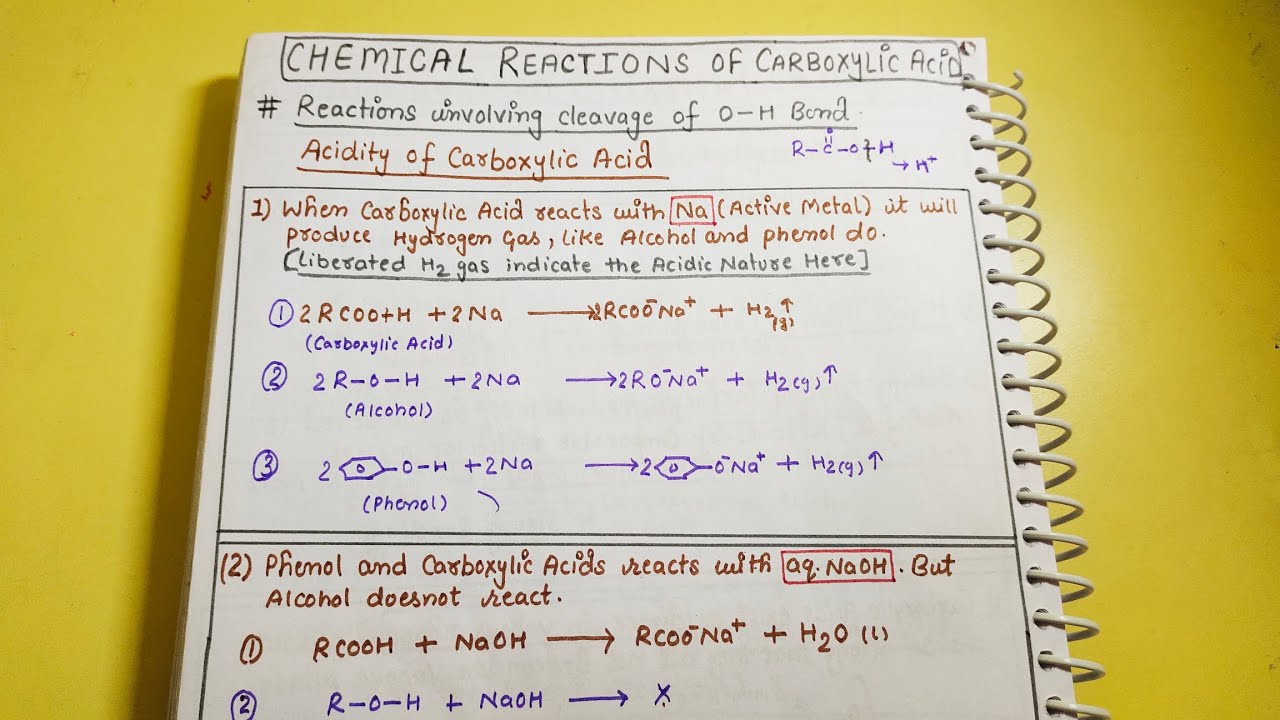 CHEMICAL REACTIONS OF CARBOXYLIC ACID
# Reactions involving cleavage of O-H Bond.
Acidity of Carboxylic Acid
O
R-C-O-H
→ H⁺
1) When Carboxylic Acid reacts with Na (Active Metal) it will
produce Hydrogen Gas, like Alcohol and phenol do.
[Liberated H₂ gas indicate the Acidic Nature Here]
① 2RCOO-H + 2Na → 2RCOO⁻Na⁺ + H₂↑
(g)
(Carboxylic Acid)
② 2R-O-H + 2Na → 2RO⁻Na⁺ + H₂(g)↑
(Alcohol)
③ 2 -O-H + 2Na → 2 -O⁻Na⁺ + H₂(g)↑
(Phenol)
(2) Phenol and Carboxylic Acids reacts with aq. NaOH. But
Alcohol doesnot react.
① RCOOH + NaOH → RCOO⁻Na⁺ + H₂O (l)
② R-O-H + NaOH → X